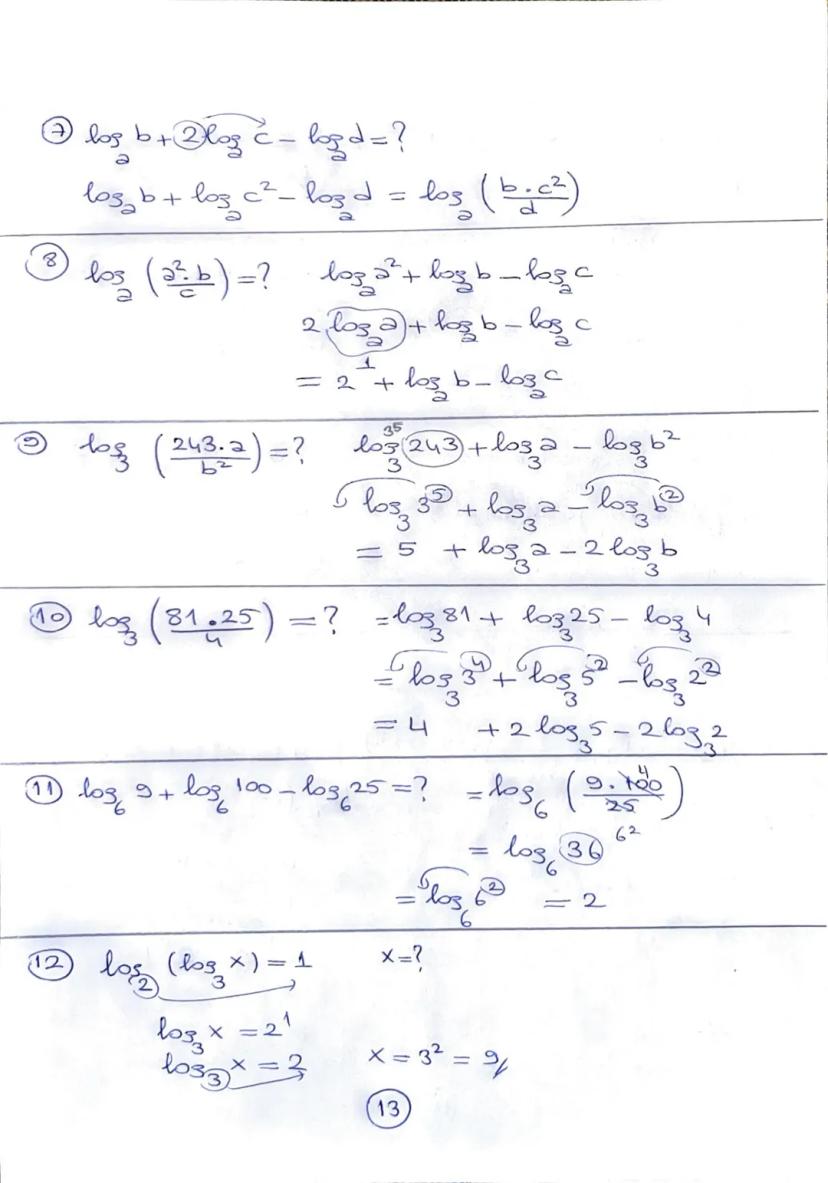 ⑦ logₐ b + 2 logₐ c − logₐ d = ?
logₐ b + logₐ c² − logₐ d = logₐ (b·c²/d)
⑧ logₐ (a²·b/c) = ? logₐ a² + logₐ b − logₐ c
2 logₐ a + logₐ b − logₐ c
1
= 2 + logₐ b − logₐ c
⑨ log₃ (243·a/b²) = ? log₃ 243 + log₃ a − log₃ b²
3⁵
log₃ 3⁵ + log₃ a − log₃ b²
= 5 + log₃ a − 2 log₃ b
⑩ log₃ (81.25/4) = ? = log₃ 81 + log₃ 25 − log₃ 4
= log₃ 3⁴ + log₃ 5² − log₃ 2²
= 4 + 2 log₃ 5 − 2 log₃ 2
⑪ log₆ 9 + log₆ 100 − log₆ 25 = ? = log₆ (9.100/25)
4
= log₆ 36 6²
= log₆ 6² = 2
⑫ log₂ (log₃ x) = 1 x = ?
log₃ x = 2¹
log₃ x = 2 x = 3² = 9
⑬